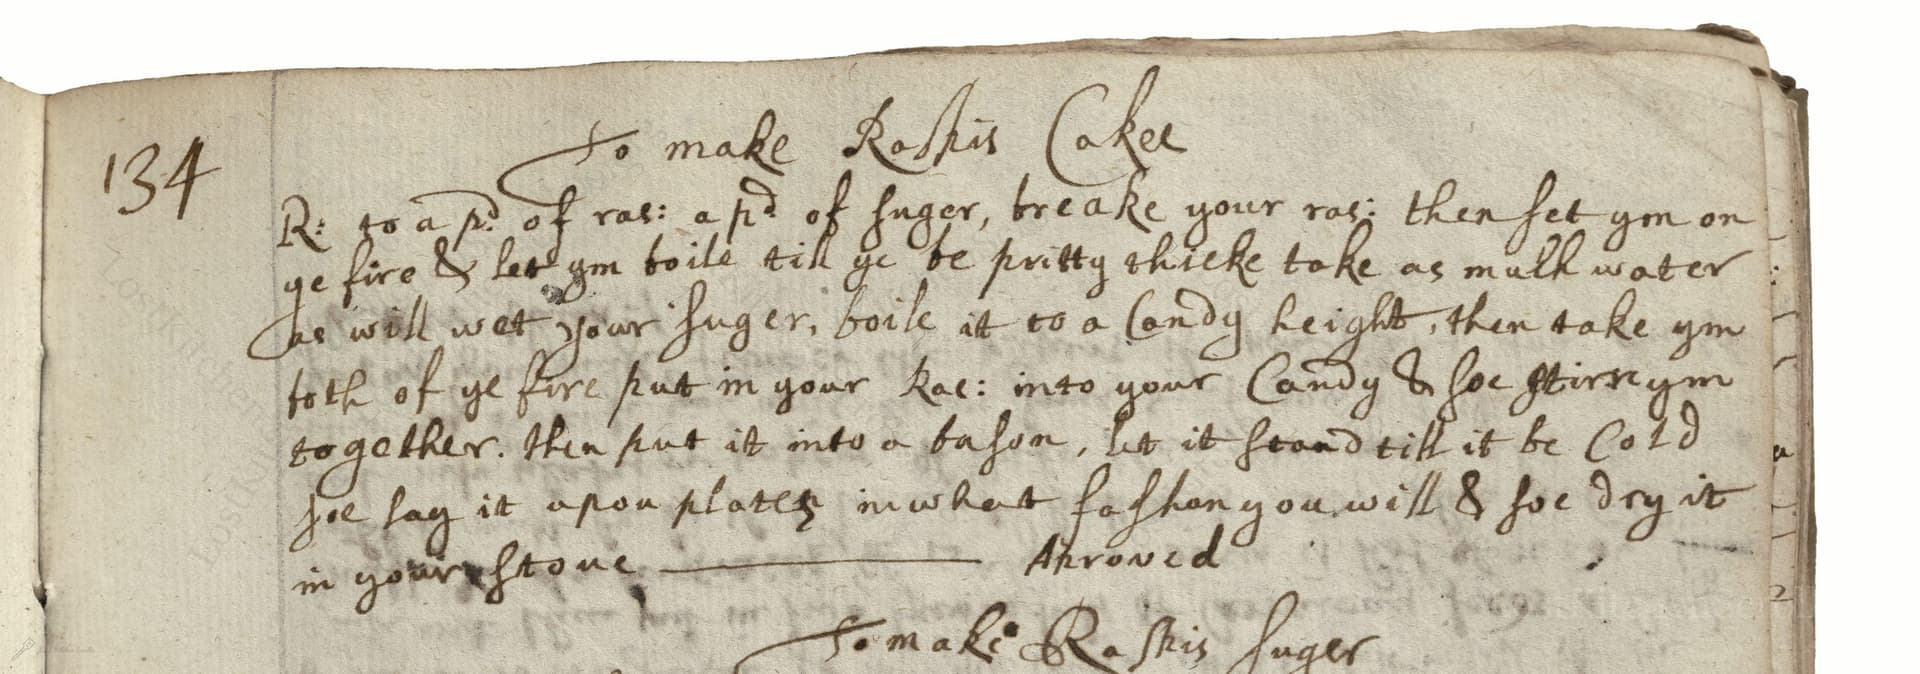 134
To make Raspis Cakes
R: to a pd of ras: a pd of suger, breake your ras: then set ym on
ye fire & let ym boile till ye be pritty thicke take as much water
as will wet your suger, boile it to a Candy height, then take ym
both of ye fire put in your Ras: into your Candy & soe stirre ym
together. then put it into a bason, let it stand till it be Cold
soe lay it upon plates in what fashon you will & soe dry it
in your stove ——— Aproved
To make Raspis suger